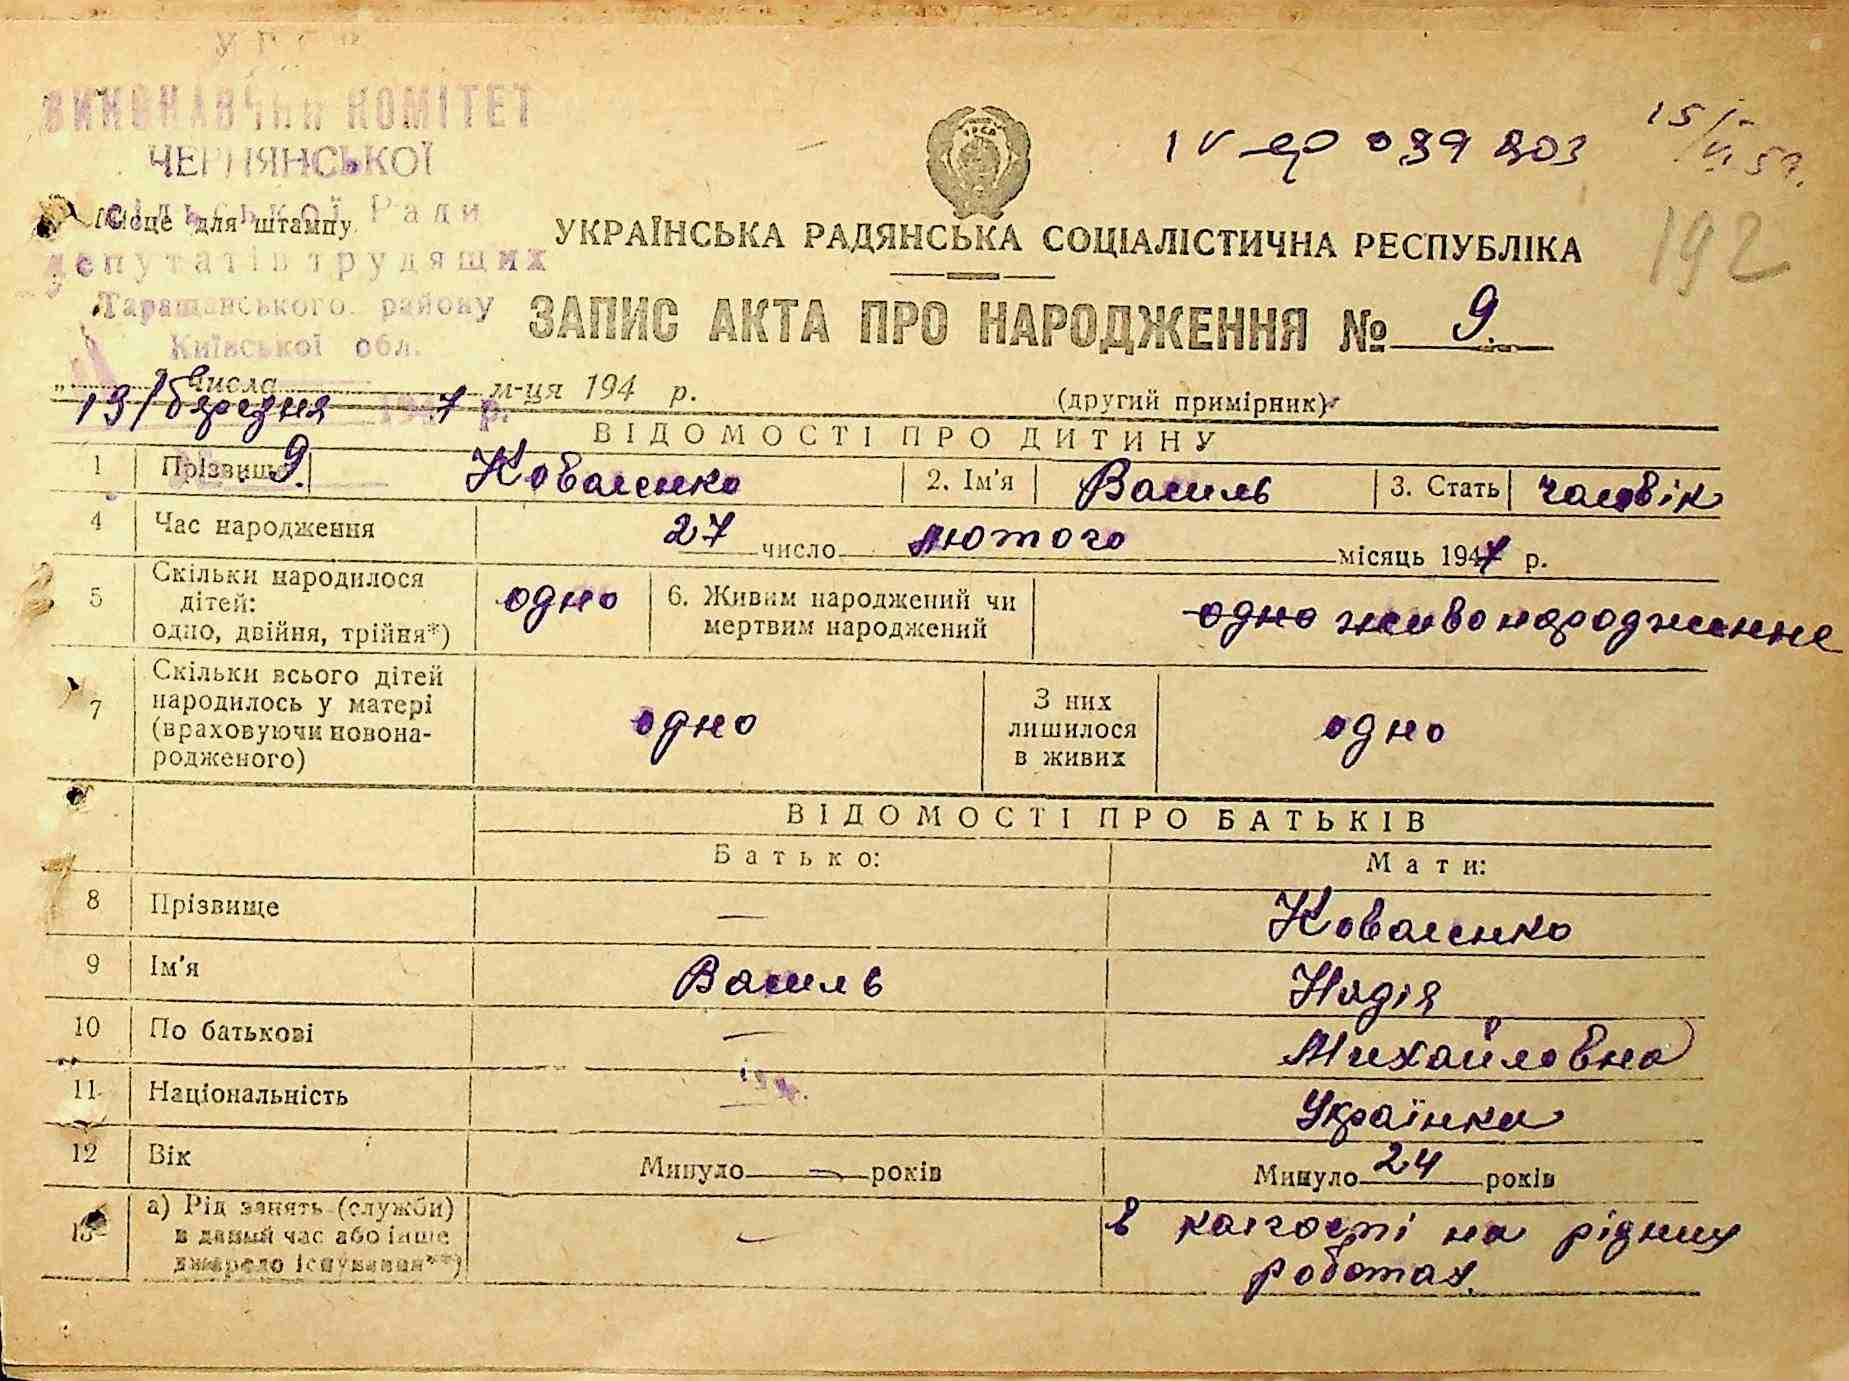 УРСР
ВИКОНАВЧИЙ КОМІТЕТ
ЧЕРНЯНСЬКОЇ
сільської Ради
депутатів трудящих
Таращанського району
Київської обл.
Місце для штампу
IV 039 803
15/VI 59.
192
УКРАЇНСЬКА РАДЯНСЬКА СОЦІАЛІСТИЧНА РЕСПУБЛІКА
ЗАПИС АКТА ПРО НАРОДЖЕННЯ № 9.
„ “ числа м-ця 194 р.
13/березня 1947 р.
(другий примірник)
ВІДОМОСТІ ПРО ДИТИНУ
1 Прізвище 9. Коваленко 2. Ім'я Василь 3. Стать чоловік
4 Час народження 27 число лютого місяць 1947 р.
5 Скільки народилося дітей: одно, двійня, трійня*) одно 6. Живим народжений чи мертвим народжений одно живонародженне
7 Скільки всього дітей народилось у матері (враховуючи новонародженого) одно З них лишилося в живих одно
ВІДОМОСТІ ПРО БАТЬКІВ
Батько: Мати:
8 Прізвище — Коваленко
9 Ім'я Василь Надія
10 По батькові — Михайловна
11 Національність — Українка
12 Вік Минуло — років Минуло 24 років
13 а) Рід занять (служби) в даний час або інше джерело існування**) — в колгоспі на рідних
роботах.